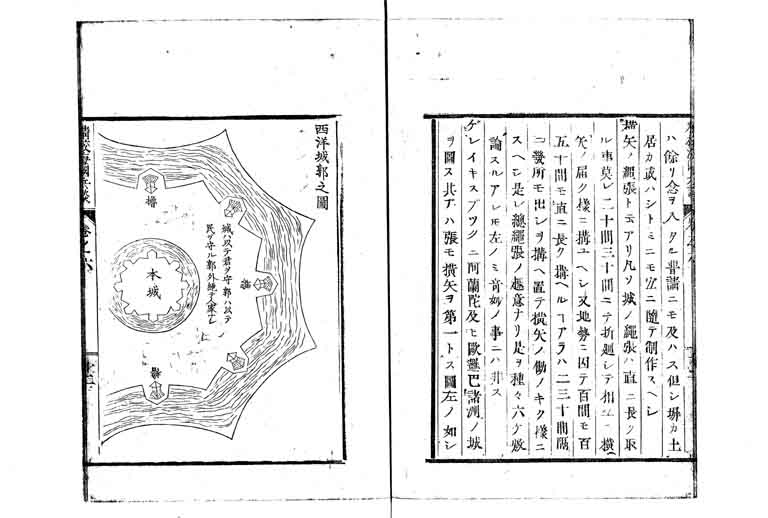 ハ餘リ念ヲ入タル普請ニモ及ハス但シ塀カ土
居カ或ハシトミニモ宜ニ隨テ制作スヘシ
横矢ノ繩張ト云アリ凡ソ城ノ繩張ハ直ニ長ク取
ル事莫レ二十間三十間ニテ折廻シテ相互ニ横
矢ノ屆ク樣ニ搆ユヘシ又地勢ニ因テ百間モ百
五十間モ直ニ長ク搆ヘルコアラハ二三十間隔
ニ發所モ出シヲ搆ヘ置テ横矢ノ働ノキク樣ニ
スヘシ是レ總繩張ノ趣意ナリ是ヲ種々六ケ敷
論スルアレ
左ノミ奇妙ノ事ニハ非ス
ゲレイキスブック
ニ阿蘭陀及ヒ歐羅巴諸洲ノ城
ヲ圖ス其
ハ張モ横矢ヲ第一トス圖左ノ如シ
西洋城郭之圖
櫓
城ハ以テ君ヲ守郭ハ以テノ
民ヲ守ル郭外
本城
卷之六